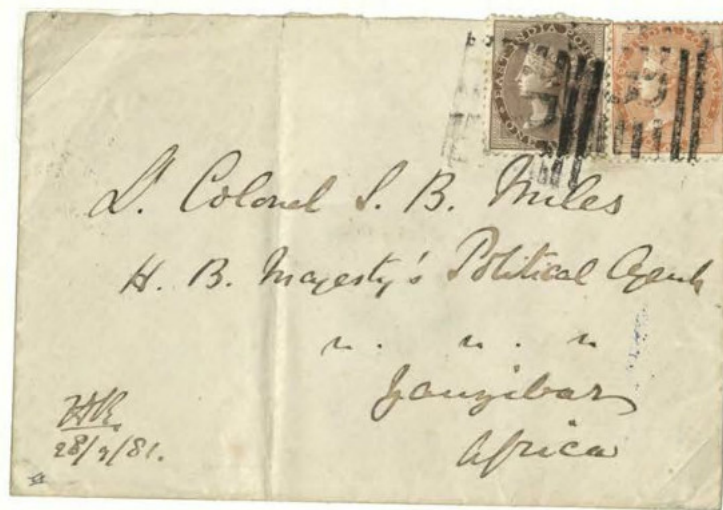 EAST INDIA POSTAGE
Lt. Colonel S. B. Miles
H. B. Majesty's Political Agent
" " "
Zanzibar
Africa
28/2/81.